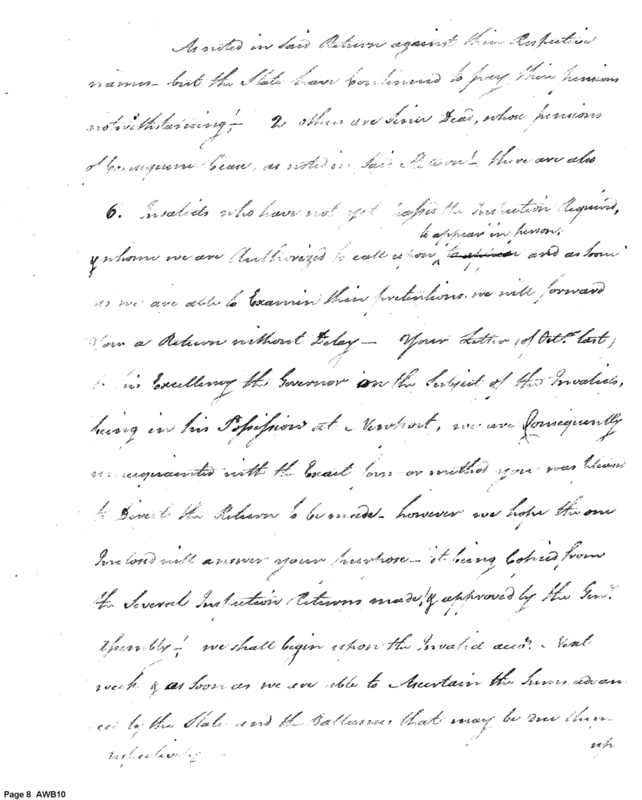 As noted in said Return against their Respective
names - but the State have Continued to pay their pensions
notwithstanding! 2 others are Since Dead, whose pensions
of Consequence Cease, as noted in said Return! there are also
6. Invalids who have not yet the Inspection Required,
to appear in person,
& whome we are Authorized to call upon and as soon
as we are able to Examin their pretentions. we will forward
You a Return without Delay - Your Letter, (of Octr. last,
to his Excellency the Governor on the Subject of the Invalids,
being in his Possession at Newport, we are Consequently
unacquainted with the Exact form or method you was
to Direct the Return to be made - however we hope the one
Inclosd will answer your purpose - it being Copied from
the Several Inspection Returns made, & approved by the Genl.
Assembly! we shall begin upon the Invalid acct. Next
week & as soon as we are able to Ascertain the Sums advan
ced by the State and the Ballances that may be due them
respectively
Page 8 AWB10